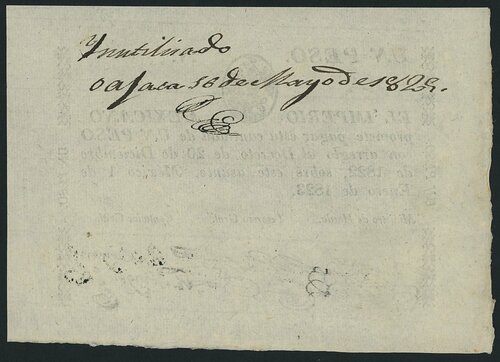 Ynutilisado
oajaca 16 de Mayo de 1823.
UN PESO
EL IMPERIO MEXICANO
promete pagar esta cantidad de UN PESO
con arreglo al Decreto de 20 de Diciembre
de 1822, sobre este asunto. México 1° de
Enero de 1823.